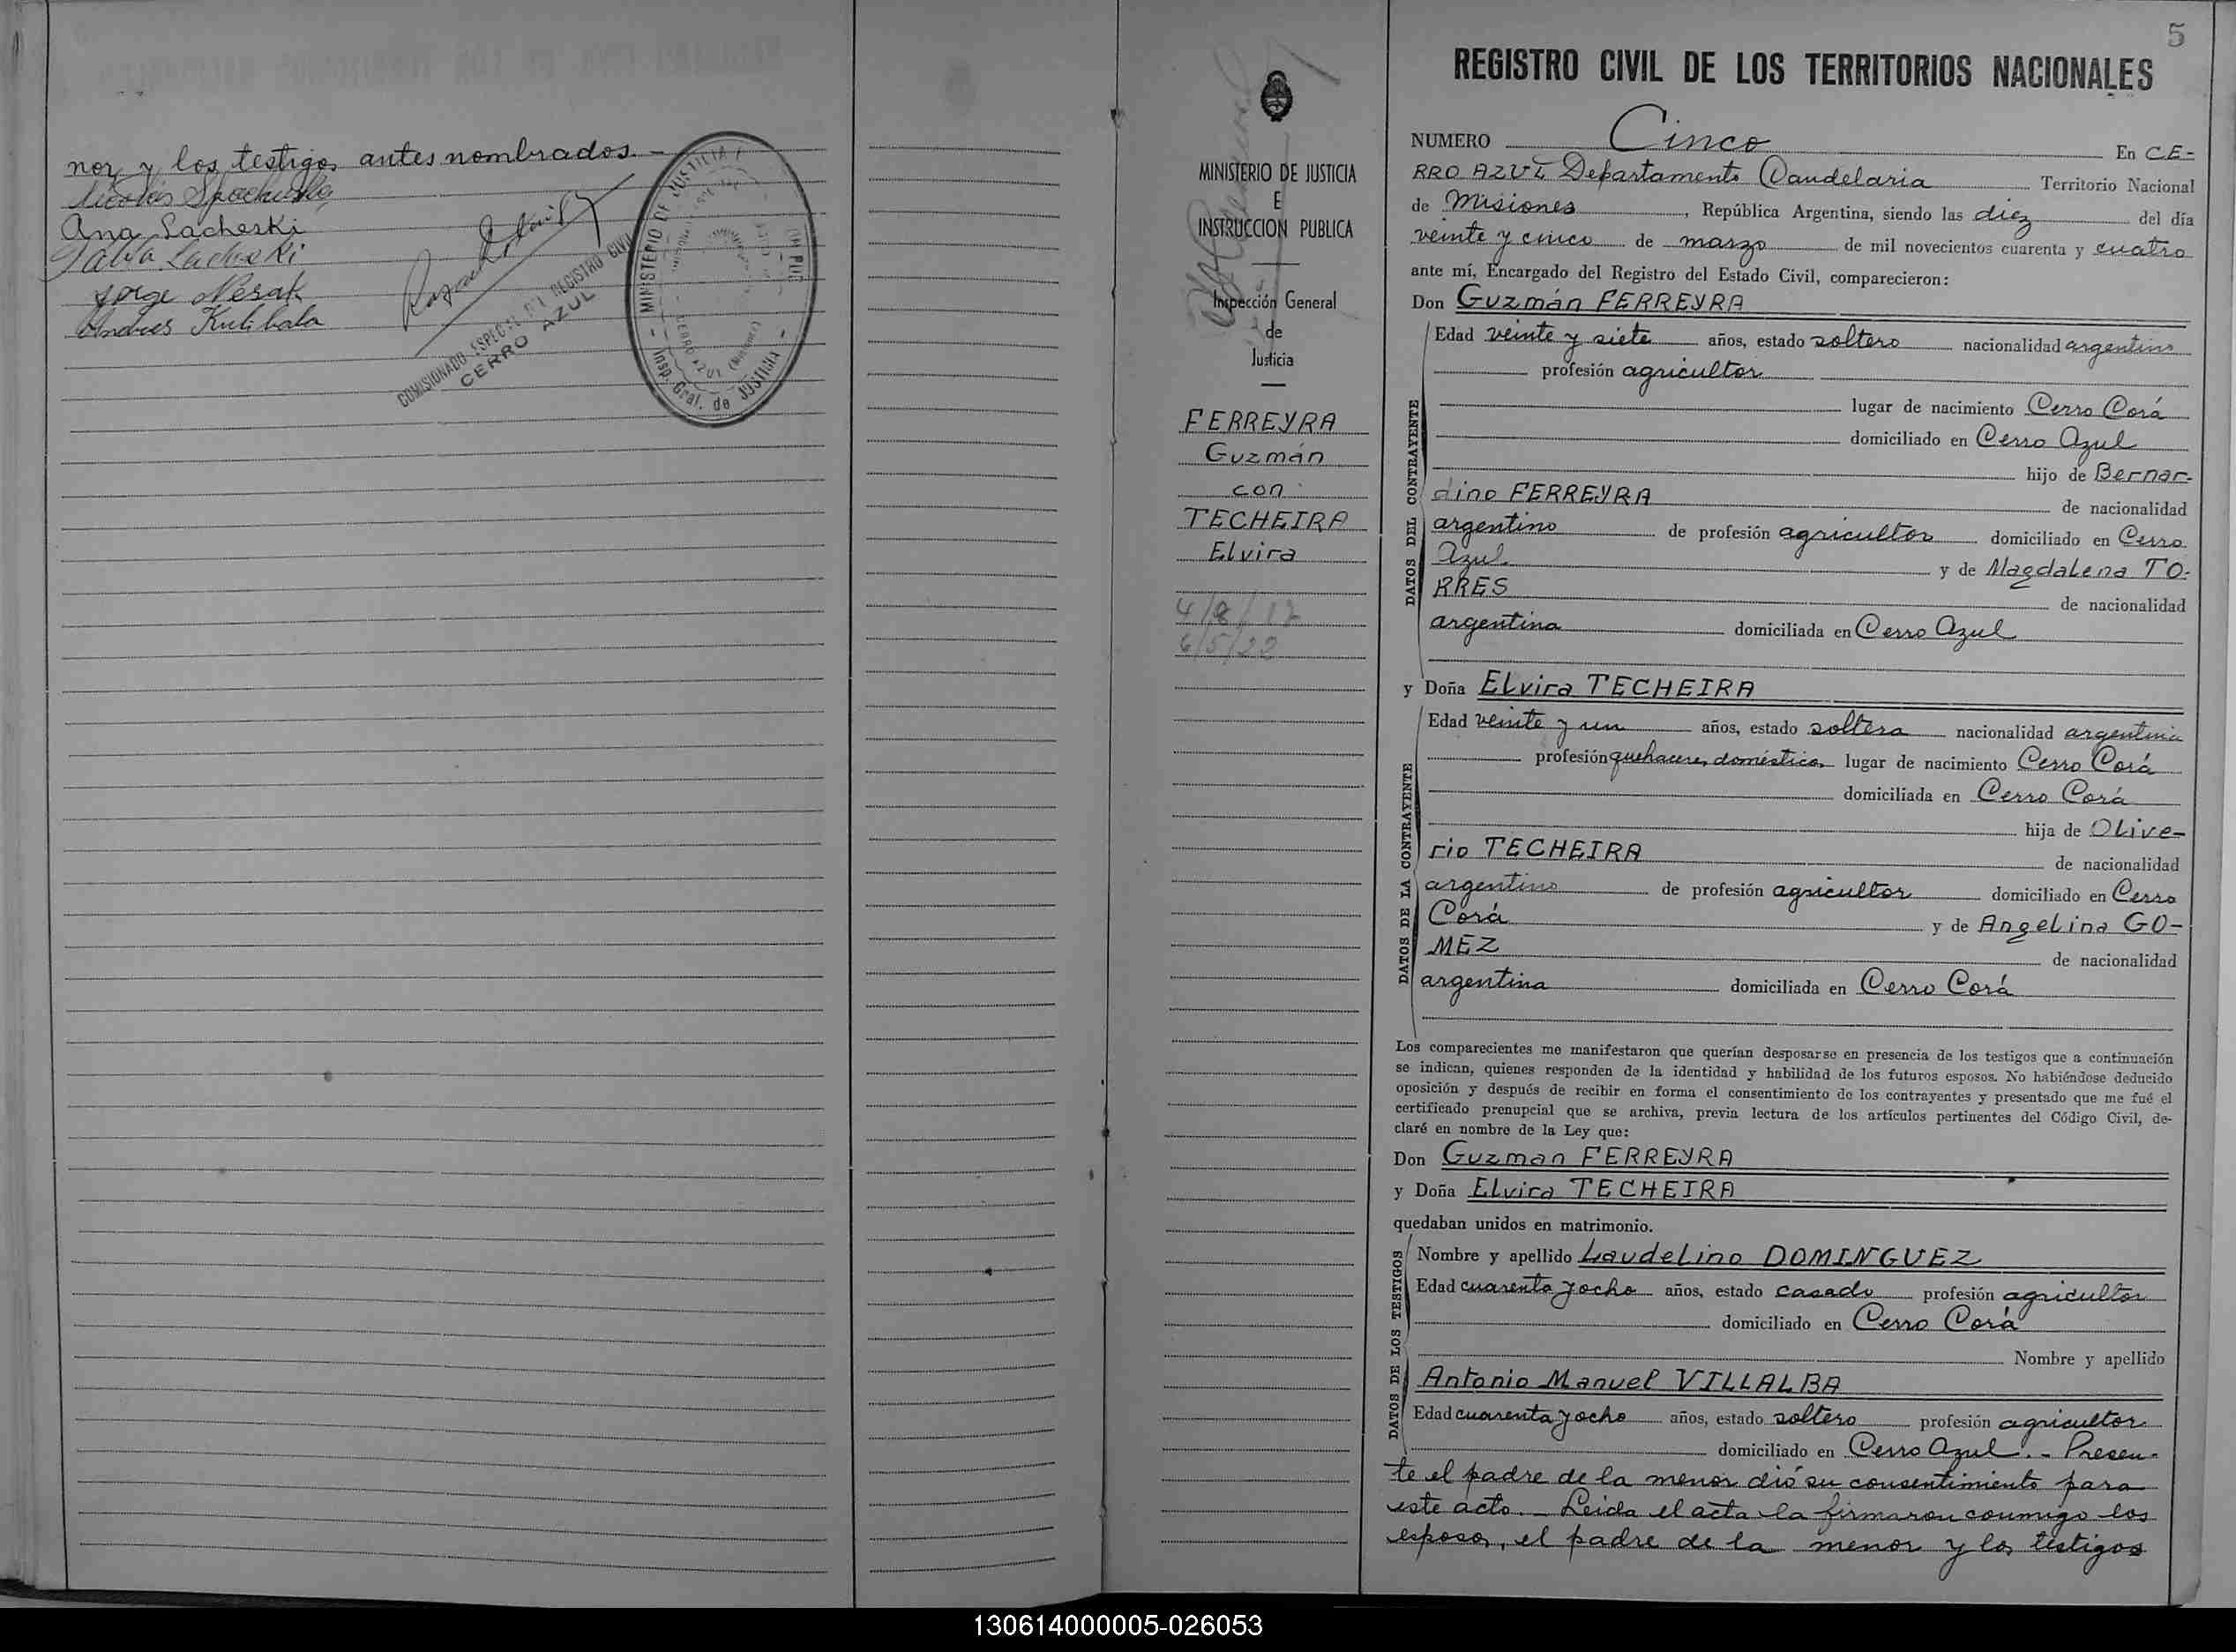 nor y los testigos antes nombrados. -
Ana Lacheski
Jorge Nerak
Andres Kulibala
COMISIONADO ESPECIAL DEL REGISTRO CIVIL
CERRO AZUL
- MINISTERIO DE JUSTICIA E IN. PUB. -
Insp. Gral. de JUSTICIA
CERRO AZUL (Misiones)
MINISTERIO DE JUSTICIA
E
INSTRUCCION PUBLICA
Inspección General
de
Justicia
FERREYRA
Guzmán
con
TECHEIRA
Elvira
4/8/12
6/5/22
5
REGISTRO CIVIL DE LOS TERRITORIOS NACIONALES
NUMERO Cinco En CE-
RRO AZUL Departamento Candelaria Territorio Nacional
de Misiones, República Argentina, siendo las diez del día
veinte y cinco de marzo de mil novecientos cuarenta y cuatro
ante mí, Encargado del Registro del Estado Civil, comparecieron:
Don Guzmán FERREYRA
DATOS DEL CONTRAYENTE
Edad veinte y siete años, estado soltero nacionalidad argentino
profesión agricultor
lugar de nacimiento Cerro Corá
domiciliado en Cerro Azul
hijo de Bernar-
dino FERREYRA de nacionalidad
argentino de profesión agricultor domiciliado en Cerro
Azul y de Magdalena TO-
RRES de nacionalidad
argentina domiciliada en Cerro Azul
y Doña Elvira TECHEIRA
DATOS DE LA CONTRAYENTE
Edad veinte y un años, estado soltera nacionalidad argentina
profesión quehaceres domésticos lugar de nacimiento Cerro Corá
domiciliada en Cerro Corá
hija de Olive-
rio TECHEIRA de nacionalidad
argentino de profesión agricultor domiciliado en Cerro
Corá y de Angelina GO-
MEZ de nacionalidad
argentina domiciliada en Cerro Corá
Los comparecientes me manifestaron que querían desposarse en presencia de los testigos que a continuación
se indican, quienes responden de la identidad y habilidad de los futuros esposos. No habiéndose deducido
oposición y después de recibir en forma el consentimiento de los contrayentes y presentado que me fué el
certificado prenupcial que se archiva, previa lectura de los artículos pertinentes del Código Civil, de-
claré en nombre de la Ley que:
Don Guzman FERREYRA
y Doña Elvira TECHEIRA
quedaban unidos en matrimonio.
DATOS DE LOS TESTIGOS
Nombre y apellido Laudelino DOMINGUEZ
Edad cuarenta y ocho años, estado casado profesión agricultor
domiciliado en Cerro Corá
Nombre y apellido
Antonio Manuel VILLALBA
Edad cuarenta y ocho años, estado soltero profesión agricultor
domiciliado en Cerro Azul. - Presen-
te el padre de la menor dió su consentimiento para
este acto. - Leida el acta la firmaron conmigo los
esposos, el padre de la menor y los testigos
130614000005-026053